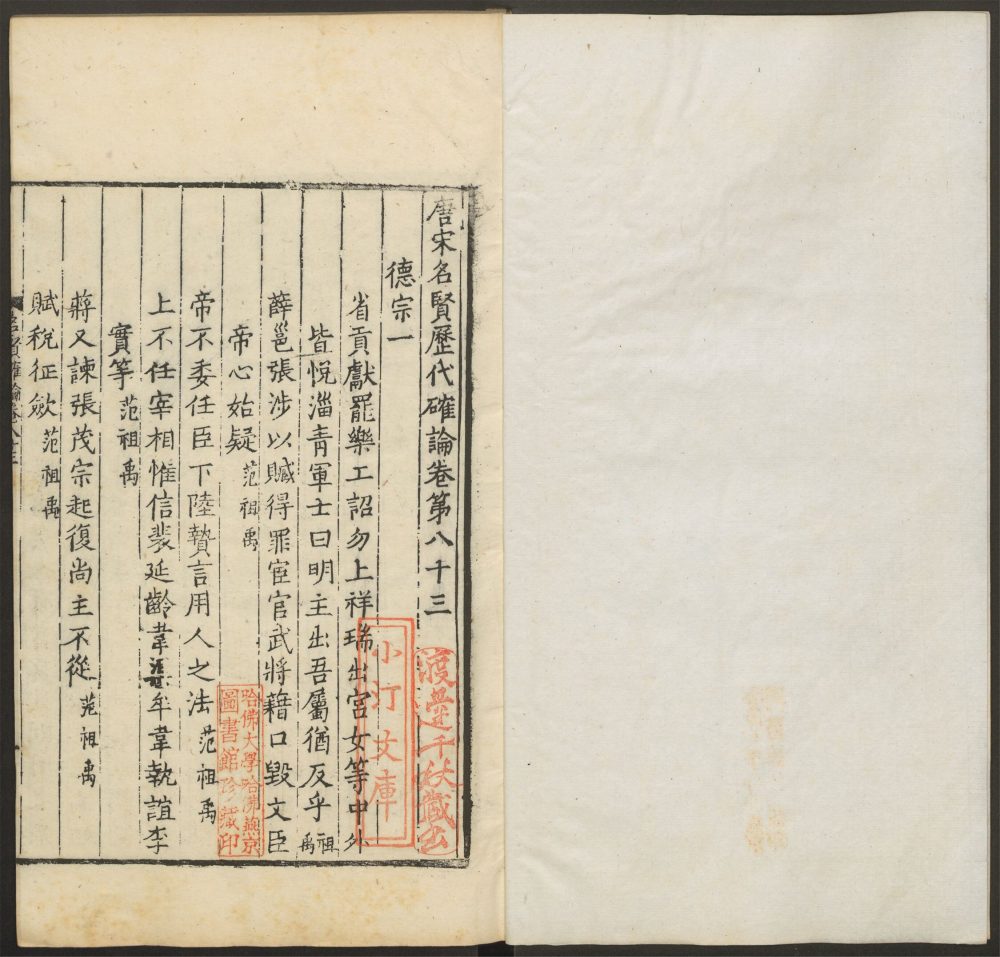 唐宋名賢歷代確論卷第八十三
德宗一
省貢獻罷樂工詔勿上祥瑞出宮女等中外
皆悅淄青軍士曰明主出吾屬猶反乎祖禹
薛邕張涉以贓得罪宦官武將藉口毀文臣
帝心始疑范祖禹
帝不委任臣下陸贄言用人之法范祖禹
上不任宰相惟信裴延齡韋渠牟韋執誼李
實等范祖禹
蔣乂諫張茂宗起復尚主不從范祖禹
賦稅征歛范祖禹
名賢確論卷八十三
渡邊千秋藏書
小汀文庫
哈佛大學哈佛燕京
圖書館珍藏印